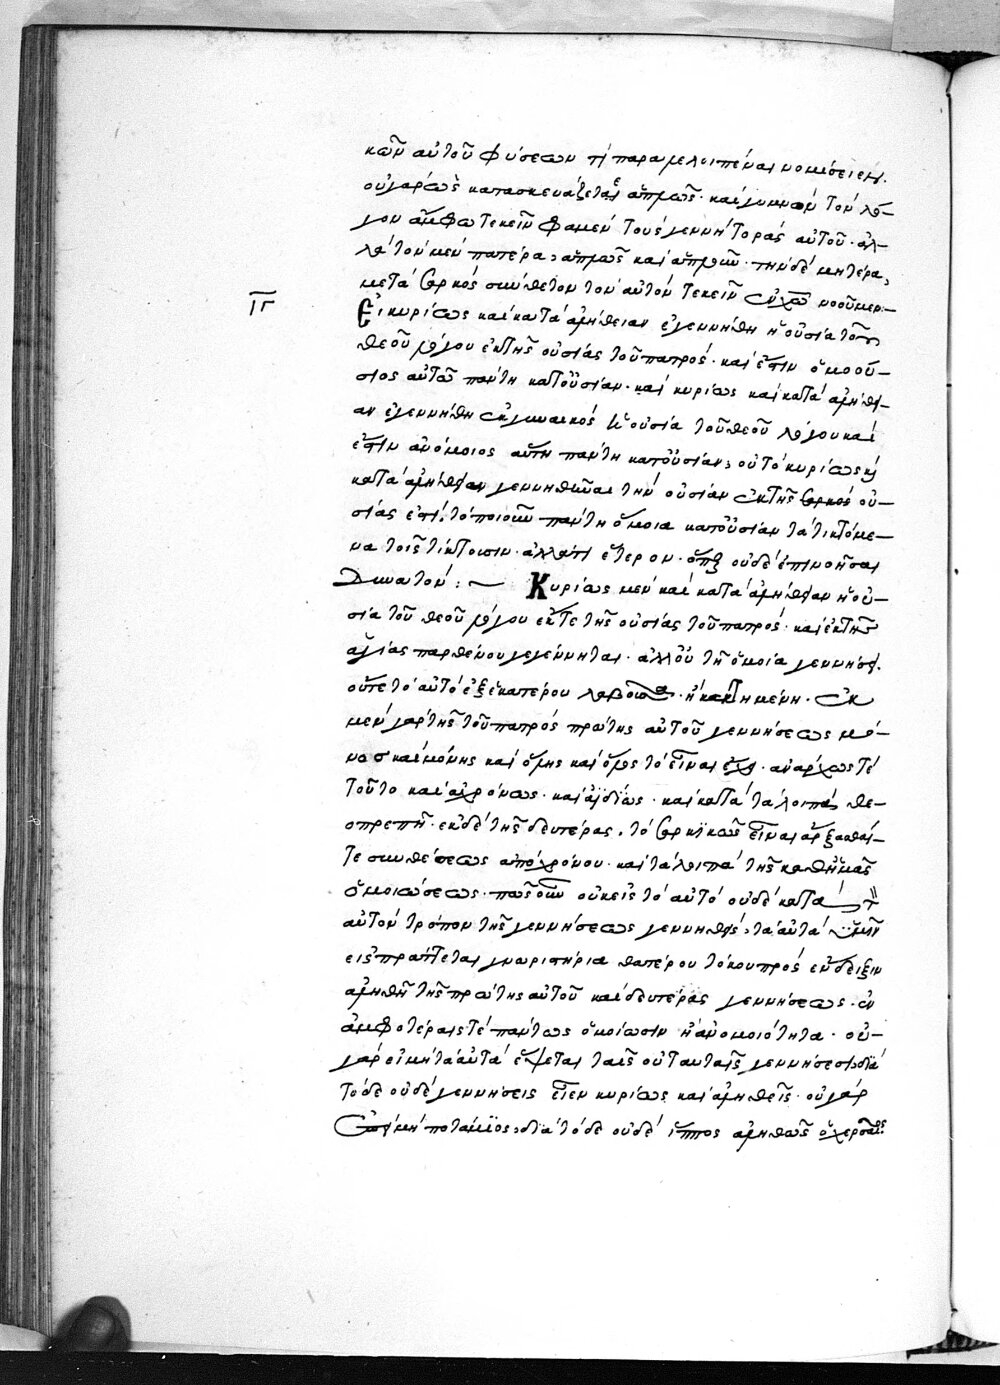 κῶν αὐτοῦ φύσεων τί παραμελοιπέναι νομίσειεν.
οὐ γὰρ ὡς κατασκευάζεται ἁπλῶς· καὶ γυμνὸν τὸν λό-
γον ἄμφω τεκεῖν φαμὲν τοὺς γεννήτορας αὐτοῦ· ἀλ-
λὰ τὸν μὲν πατέρα, ἁπλῶς καὶ ἁπλοῦν· τὴν δὲ μητέρα,
μετὰ σαρκὸς σύνθετον τὸν αὐτὸν τεκεῖν νοοῦμεν·
ιγ
Εἰ κυρίως καὶ κατὰ ἀλήθειαν ἐγεννήθη ἡ οὐσία τοῦ
θεοῦ λόγου ἐκ τῆς οὐσίας τοῦ πατρός· καὶ ἔστιν ὁμοού-
σιος αὐτῷ πάντη κατ' οὐσίαν· καὶ κυρίως καὶ κατὰ ἀλήθει-
αν ἐγεννήθη ἐκ γυναικὸς ἡ οὐσία τοῦ θεοῦ λόγου καὶ
ἔστιν ἀνόμοιος αὐτῇ πάντη κατ' οὐσίαν, οὐ τὸ κυρίως καὶ
κατὰ ἀλήθειαν γεννηθῆναι τὴν οὐσίαν ἐκ τῆς σαρκὸς οὐ-
σίας ἐστὶ, τὸ ποιοῦν πάντη ὅμοια κατ' οὐσίαν τὰ τικτόμε-
να τοῖς τίκτουσιν· ἀλλά τι ἕτερον· ὅπερ οὐδὲ ἐπινοῆσαι
δυνατόν : ~ Κυρίως μὲν καὶ κατὰ ἀλήθειαν ἡ οὐ-
σία τοῦ θεοῦ λόγου ἔκ τε τῆς οὐσίας τοῦ πατρός· καὶ ἐκ τῆς
ἁγίας παρθένου γεγέννηται· ἀλλ' οὐ τῇ ὁμοίᾳ γεννήσει.
οὔτε τὸ αὐτὸ ἐξ ἑκατέρου λαβοῦσα· ἢ κεκτημένη· ἐκ
μὲν γὰρ τῆς τοῦ πατρὸς πρώτης αὐτοῦ γεννήσεως μό-
νος καὶ μόνης καὶ ὅλης καὶ ὅλος τὸ εἶναι ἔχει· ἀνάρχως τέ
τοῦτο καὶ ἀχρόνως· καὶ ἀϊδίως· καὶ κατὰ τὰ λοιπὰ θε-
οπρεπῆ· ἐκ δὲ τῆς δευτέρας, τὸ σαρκικῶς εἶναι ἄρξασθαί
τε συνθέσεως ἀπὸ χρόνου· καὶ τὰ λοιπὰ τῆς καθ' ἡμᾶς
ὁμοιώσεως· πῶς οὖν οὐκ εἰς τὸ αὐτὸ οὐδὲ κατὰ τ
αὐτὸν τρόπον τῆς γεννήσεως γεννηθείς, τὰ αὐτὰ ὑμῖν
εἰσπράττεται γνωριστήρια θατέρου τόκου πρὸς ἔνδειξιν
ἀληθῆ τῆς πρώτης αὐτοῦ καὶ δευτέρας γεννήσεως· ἐν
ἀμφοτέραις τὲ πάντως ὁμοίωσιν ἢ ἀνομοιότητα· οὐ
γὰρ εἰ μὴ τὰ αὐτὰ ἕψεται ταῖς οὐ ταυταῖς γεννήσεσι, διὰ
τόδε οὐδὲ γεννήσεις εἶεν κυρίως καὶ ἀληθεῖς· οὐ γὰρ
μὴ ποτάμιος, διὰ τόδε οὐδὲ ἵππος ἀληθῶς ὁ χερσαῖος